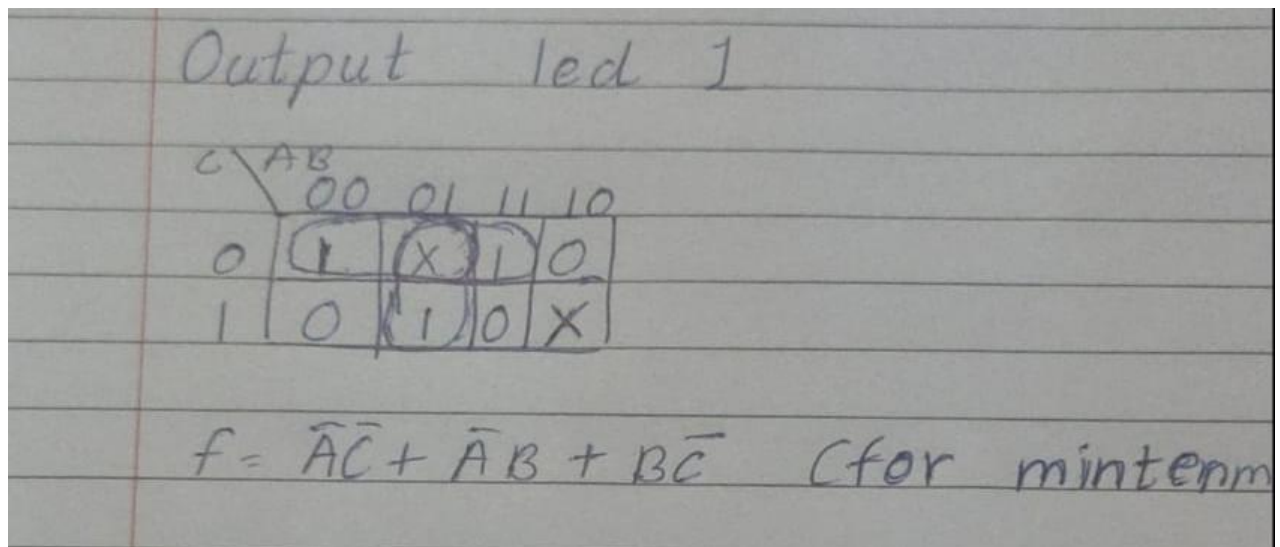 Output led 1
C \ AB
00 01 11 10
0 1 X 1 0
1 0 1 0 X
f = A̅C̅ + A̅B + BC̅ (for minterm